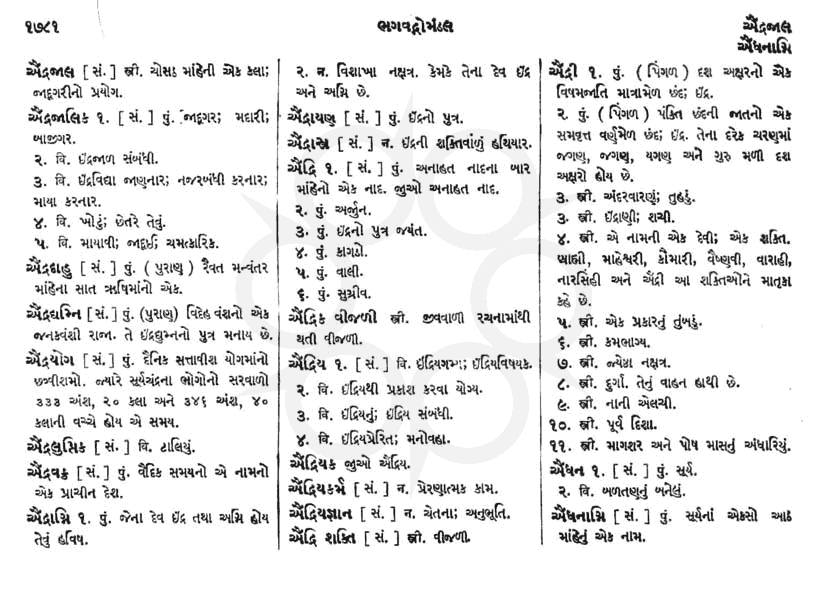 ૧૭૮૧
ભગવદ્ગોમંડલ
ઐંદ્રજાલ
ઐંધનાગ્નિ
ઐંદ્રજાલ [ સં. ] સ્ત્રી. ચોસઠ માંહેની એક કલા;
જાદુગરીનો પ્રયોગ.
ઐંદ્રજાલિક ૧. [ સં. ] પું. જાદુગર; મદારી;
બાજીગર.
૨. વિ. ઈંદ્રજાળ સંબંધી.
૩. વિ. ઈંદ્રવિદ્યા જાણનાર; નજરબંધી કરનાર;
માયા કરનાર.
૪. વિ. ખોટું; છેતરે તેવું.
૫. વિ. માયાવી; જાદુઈ; ચમત્કારિક.
ઐંદ્રબાહુ [ સં. ] પું. ( પુરાણ ) રૈવત મન્વંતર
માંહેના સાત ઋષિમાંનો એક.
ઐંદ્રદ્યુમ્નિ [ સં. ] પું. (પુરાણ) વિદેહ વંશનો એક
જનકવંશી રાજા. તે ઈંદ્રદ્યુમ્નનો પુત્ર મનાય છે.
ઐંદ્રયોગ [ સં. ] પું. દૈનિક સત્તાવીશ યોગમાંનો
છવીશમો. જ્યારે સૂર્યચંદ્રના ભોગોનો સરવાળો
૩૩૩ અંશ, ૨૦ કલા અને ૩૪૬ અંશ, ૪૦
કલાની વચ્ચે હોય એ સમય.
ઐંદ્રલુપ્તિક [ સં. ] વિ. ટાલિયું.
ઐંદ્રવક્ર [ સં. ] પું. વૈદિક સમયનો એ નામનો
એક પ્રાચીન દેશ.
ઐંદ્રાગ્નિ ૧. પું. જેના દેવ ઈંદ્ર તથા અગ્નિ હોય
તેવું હવિષ.
૨. ન. વિશાખા નક્ષત્ર. કેમકે તેના દેવ ઈંદ્ર
અને અગ્નિ છે.
ઐંદ્રાયણ [ સં. ] પું. ઈંદ્રનો પુત્ર.
ઐંદ્રાસ્ત્ર [ સં. ] ન. ઈંદ્રની શક્તિવાળું હથિયાર.
ઐંદ્રિ ૧. [ સં. ] પું. અનાહત નાદના બાર
માંહેનો એક નાદ. જુઓ અનાહત નાદ.
૨. પું. અર્જુન.
૩. પું. ઈંદ્રનો પુત્ર જયંત.
૪. પું. કાગડો.
૫. પું. વાલી.
૬. પું. સુગ્રીવ.
ઐંદ્રિક વીજળી સ્ત્રી. જીવવાળી રચનામાંથી
થતી વીજળી.
ઐંદ્રિય ૧. [ સં. ] વિ. ઈંદ્રિયગમ્ય; ઈંદ્રિયવિષયક.
૨. વિ. ઈંદ્રિયથી પ્રકાશ કરવા યોગ્ય.
૩. વિ. ઈંદ્રિયનું; ઈંદ્રિય સંબંધી.
૪. વિ. ઈંદ્રિયપ્રેરિત; મનોવહા.
ઐંદ્રિયક જુઓ ઐંદ્રિય.
ઐંદ્રિયકર્મ [ સં. ] ન. પ્રેરણાત્મક કામ.
ઐંદ્રિયજ્ઞાન [ સં. ] ન. ચેતના; અનુભૂતિ.
ઐંદ્રિ શક્તિ [ સં. ] સ્ત્રી. વીજળી.
ઐંદ્રી ૧. પું. ( પિંગળ ) દશ અક્ષરનો એક
વિષમજાતિ માત્રામેળ છંદ; ઈંદ્ર.
૨. પું. ( પિંગળ ) પંક્તિ છંદની જાતનો એક
સમવૃત્ત વર્ણમેળ છંદ; ઈંદ્ર. તેના દરેક ચરણમાં
જગણ, જગણ, યગણ અને ગુરુ મળી દશ
અક્ષરો હોય છે.
૩. સ્ત્રી. ઈંદરવારણું; તુહડું.
૩. સ્ત્રી. ઈંદ્રાણી; શચી.
૪. સ્ત્રી. એ નામની એક દેવી; એક શક્તિ.
બ્રાહ્મી, માહેશ્વરી, કૌમારી, વૈષ્ણવી, વારાહી,
નારસિંહી અને ઐંદ્રી આ શક્તિઓને માતૃકા
કહે છે.
૫. સ્ત્રી. એક પ્રકારનું તુંબડું.
૬. સ્ત્રી. કમભાગ્ય.
૭. સ્ત્રી. જ્યેષ્ઠા નક્ષત્ર.
૮. સ્ત્રી. દુર્ગા. તેનું વાહન હાથી છે.
૯. સ્ત્રી. નાની એલચી.
૧૦. સ્ત્રી. પૂર્વ દિશા.
૧૧. સ્ત્રી. માગશર અને પોષ માસનું અંધારિયું.
ઐંધન ૧. [ સં. ] પું. સૂર્ય.
૨. વિ. બળતણનું બનેલું.
ઐંધનાગ્નિ [ સં. ] પું. સૂર્યનાં એકસો આઠ
માંહેનું એક નામ.